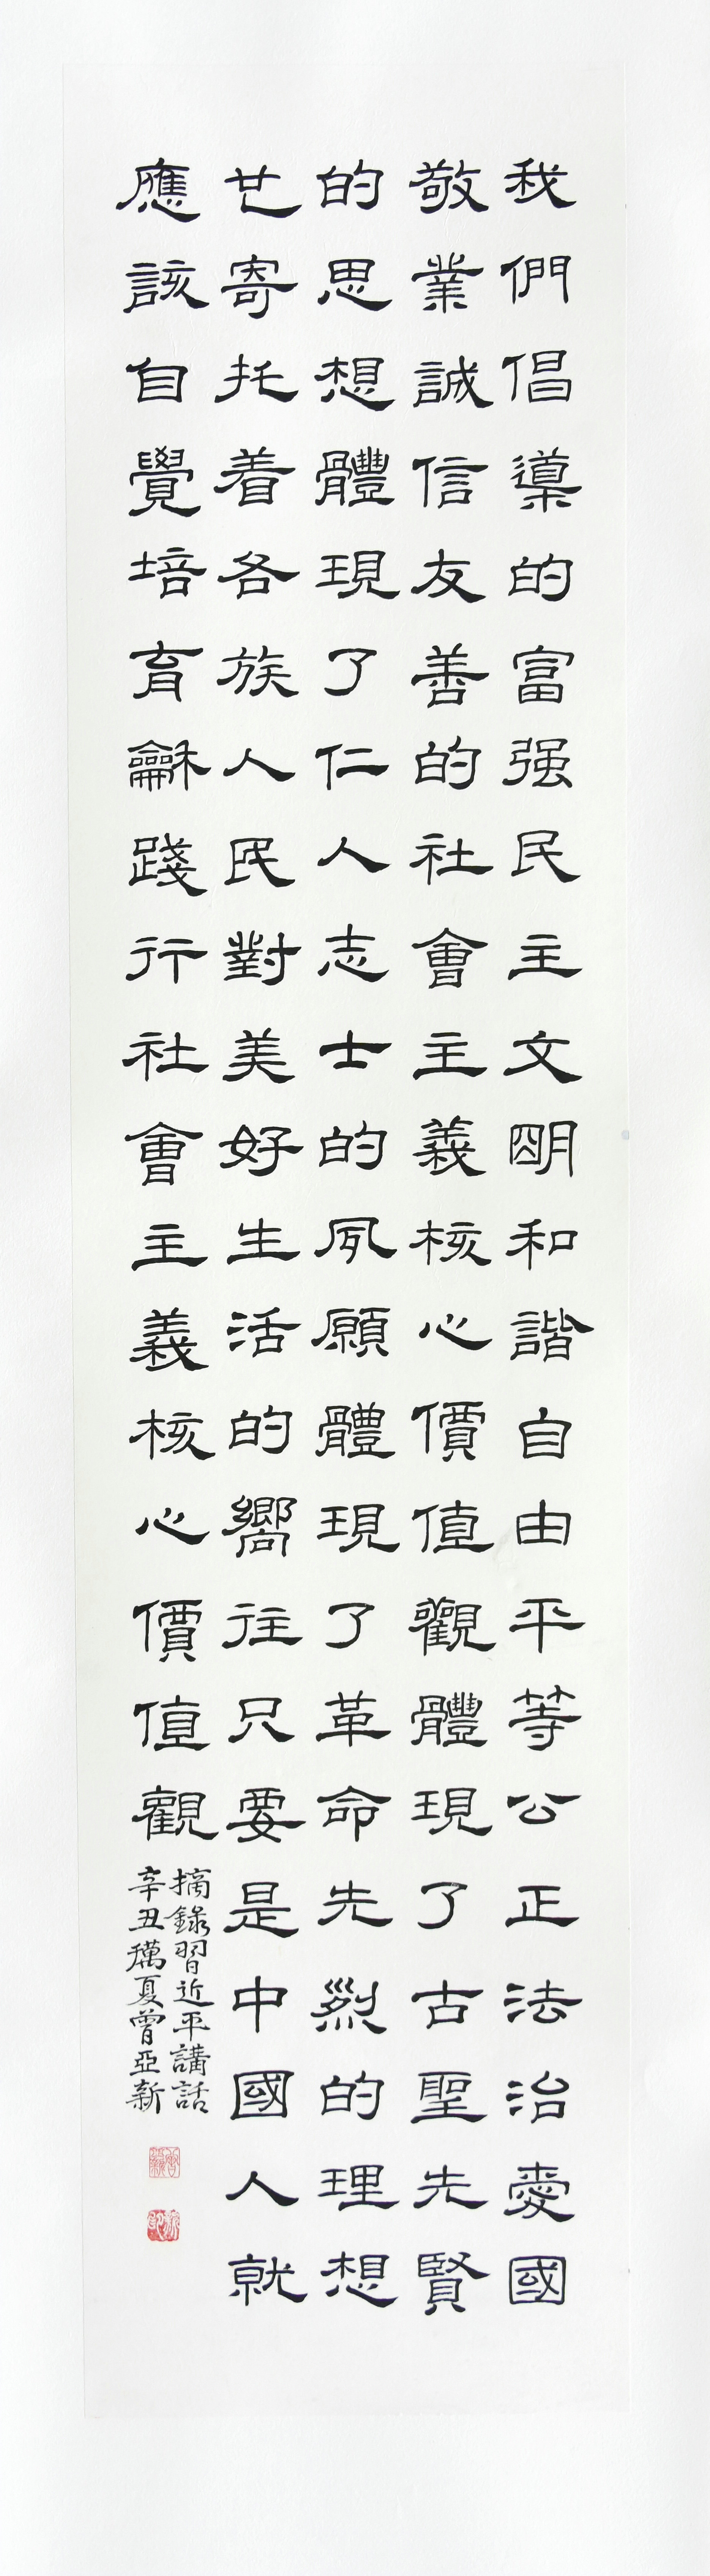 我們倡導的富强民主文明和諧自由平等公正法治愛國
敬業誠信友善的社會主義核心價值觀體現了古聖先賢
的思想體現了仁人志士的夙願體現了革命先烈的理想
也寄托着各族人民對美好生活的嚮往只要是中國人就
應該自覺培育龢踐行社會主義核心價值觀
摘錄習近平講話
辛丑夏曾亞新